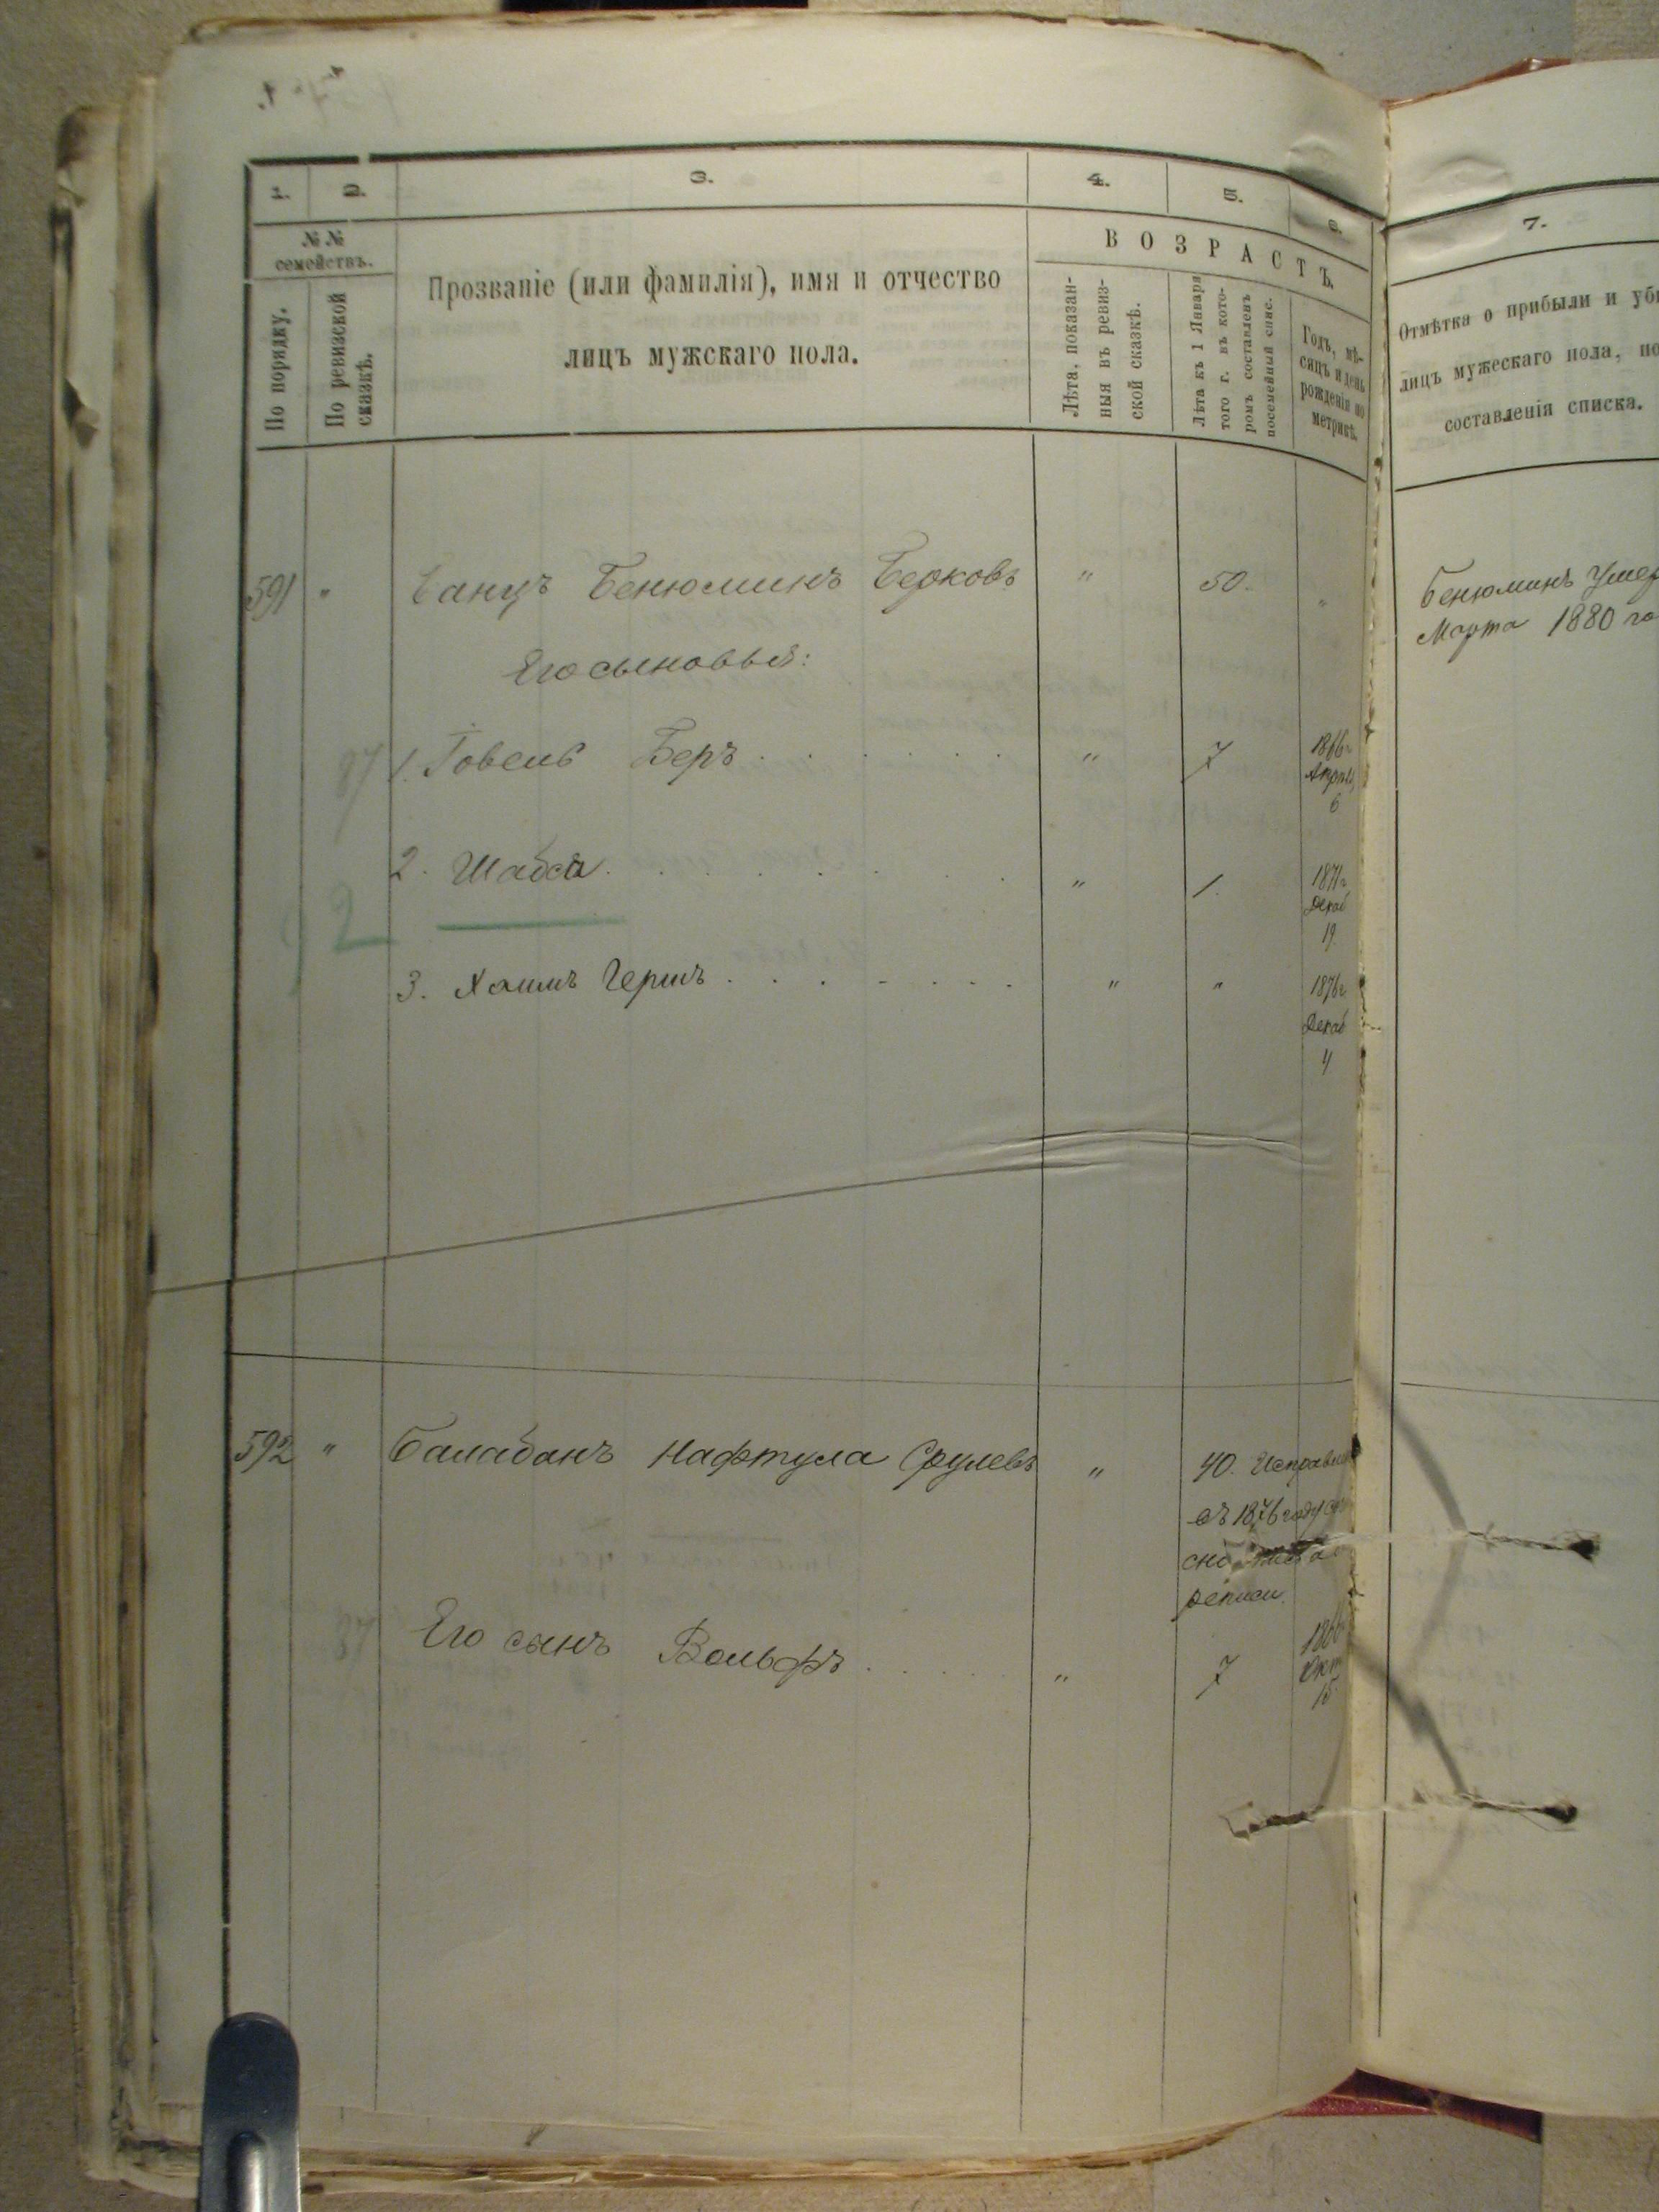 1.
2.
3.
4.
5.
6.
7.
№ №
семействъ.
По порядку.
По ревизской
сказкѣ.
Прозваніе (или фамилія), имя и отчество
лицъ мужскаго пола.
ВОЗРАСТЪ.
Лѣта, показан-
ныя въ ревиз-
ской сказкѣ.
Лѣта къ 1 Января
того г. въ кото-
ромъ составленъ
посемейный спис.
Годъ, мѣ-
сяцъ и день
рожденія по
метрикѣ.
Отмѣтка о прибыли и уб
лицъ мужескаго пола, по
составленія списка.
591 " Ганцъ Бенюминъ Берковъ " 50. "
Бенюминъ Умер
Марта 1880 го
Его сыновья:
87 1. Говель Беръ " 7 1866 г.
Апрѣля
6
2. Шабса " 1. 1871 г
Декаб
19
92
3. Хаимъ Гершъ " " 1876 г.
Декаб
4
592 " Балабанъ Нафтула Срулевъ " 40. Исправлен
въ 1876 году
описи
87 Его сынъ Вольфъ " 7 1866
Окт
15